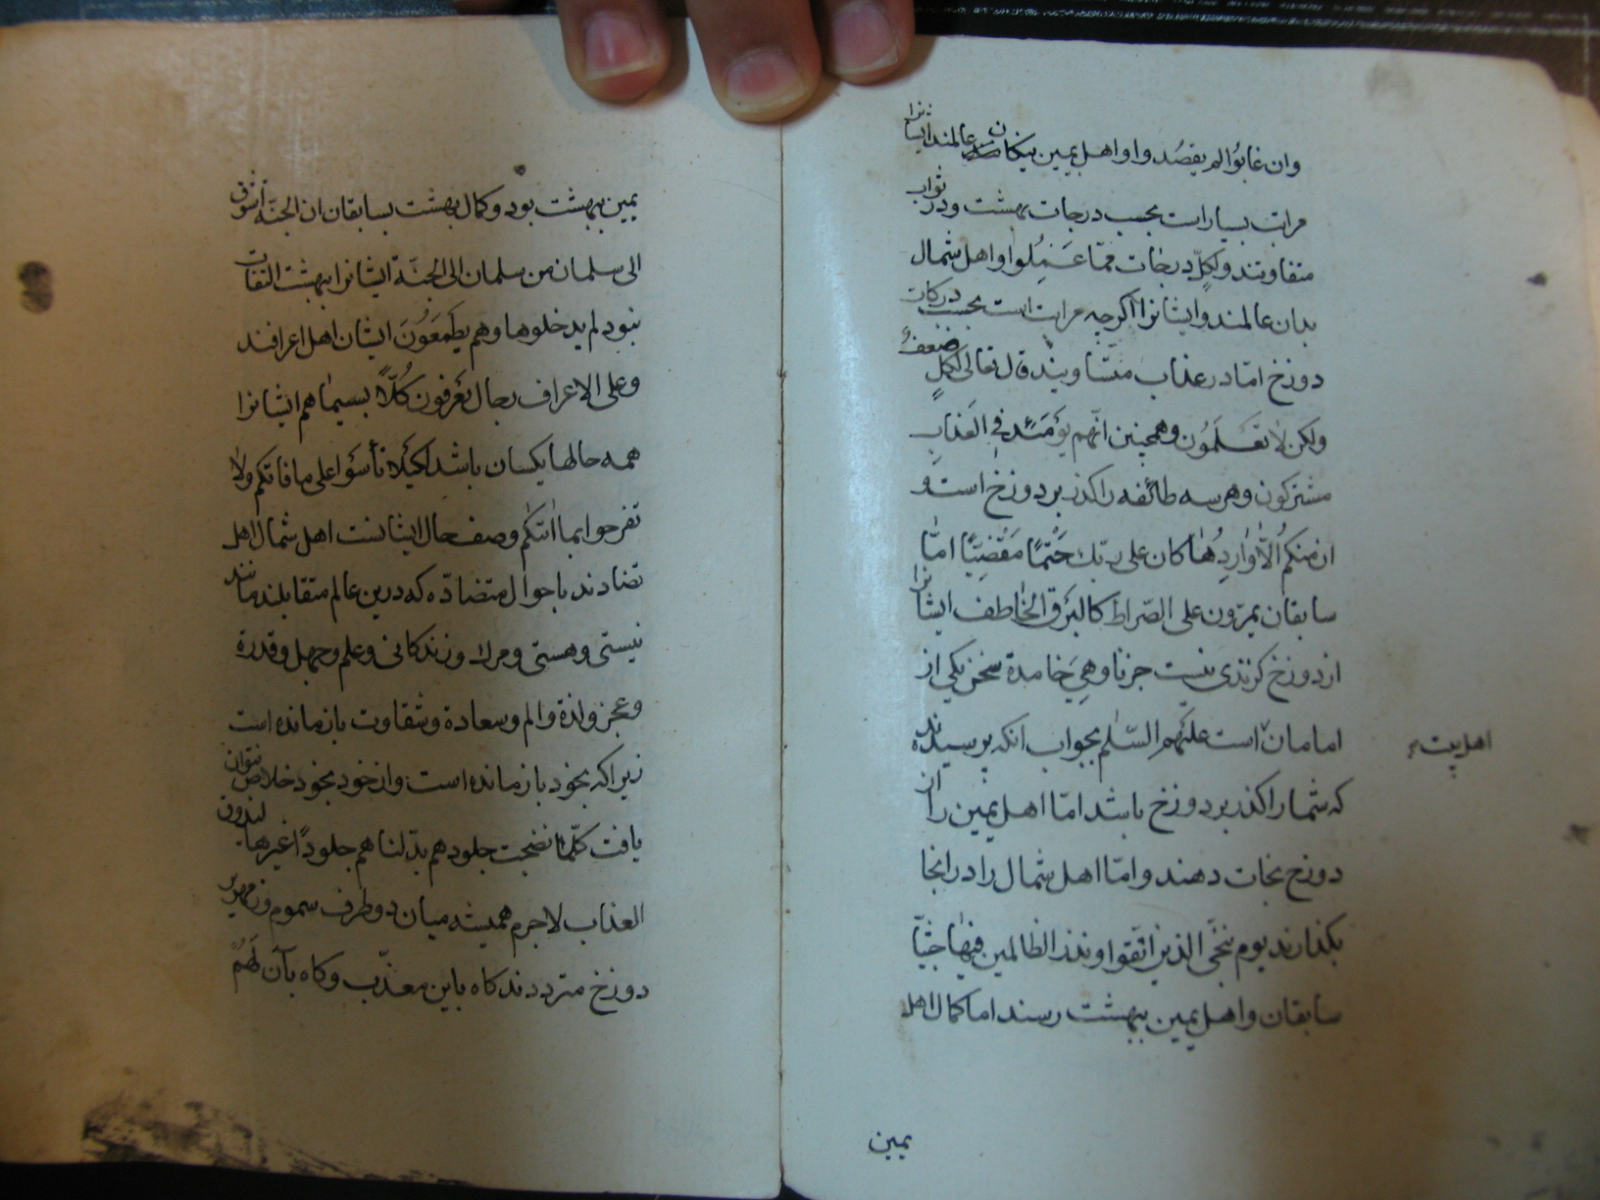 وان غابوا لم یفقدوا و اهل یمین نیکان عالمند ایشانرا
مراتب بسیار است بحسب درجات بهشت و در ثواب
متفاوتند ولکلّ درجات ممّا عَمِلُوا و اهل شمال
بدان عالمند و ایشانرا اکرچه مراتب است بحسب درکات
دوزخ امّا در عذاب متساویند قال تعالی لکلٍ ضعفٌ
ولکن لا تعلَمُون و همچنین انّهم یومئذ فی العَذابِ
مشترکون و هر سه طائفه را کذر بر دوزخ است و
ان منکم اُلّا وارِدُها کان علی ربّك حَتْمًا مَقْضِیًّا امّا
سابقان یمرّون علی الصّراط کالبرق الخاطف ایشانرا
از دوزخ کزندی نیست جزنا وهِیَ خامدة سخن یکی از
امامان است علیهم السّلم بجواب انکه پرسیدند
اهل بیت
که شما را کذر بر دوزخ باشد امّا اهل یمین را از
دوزخ نجات دهند و امّا اهل شمال را در انجا
بکذارند یوم ننجّی الذین اتّقوا و نذر الظالمین فیها جثیّا
سابقان و اهل یمین ببهشت رسند اما کمال اهل
یمین
یمین ببهشت بود و کمال بهشت بسابقان ان الجنّة اشوق
الی سلمان من سلمان الی الجنّة ایشانرا ببهشت التفات
نبود لم یدخلوها وهم یطمَعَوُنَ ایشان اهل اعرافند
وعلی الاعراف رجال یعَرفون کُلّاً بسیماهم ایشانرا
همه حالها یکسان باشد لکیلا تأسَوا علی ما فاتکم ولا
تفرحوا بما اتیکم وصف حال ایشانست اهل شمال اهل
تضادند باحوال متضادّه که درین عالم متقابلند مانند
نیستی و هستی و مرك و زندکانی و علم و جهل و قدرة
و عجز و لذة و الم و سعادة و شقاوت باز مانده است
زیرا که بخود باز مانده است و از خود بخود خلاص نتوان
یافت کلّما نضجت جلودهم بدّلناهم جلوداً غیرها لیذوقوا
العذاب لاجرم همیشه میان دو طرف سموم و زمهریر
دوزخ مترددند کاه باین معذّب و کاه بآن لَهُمْ